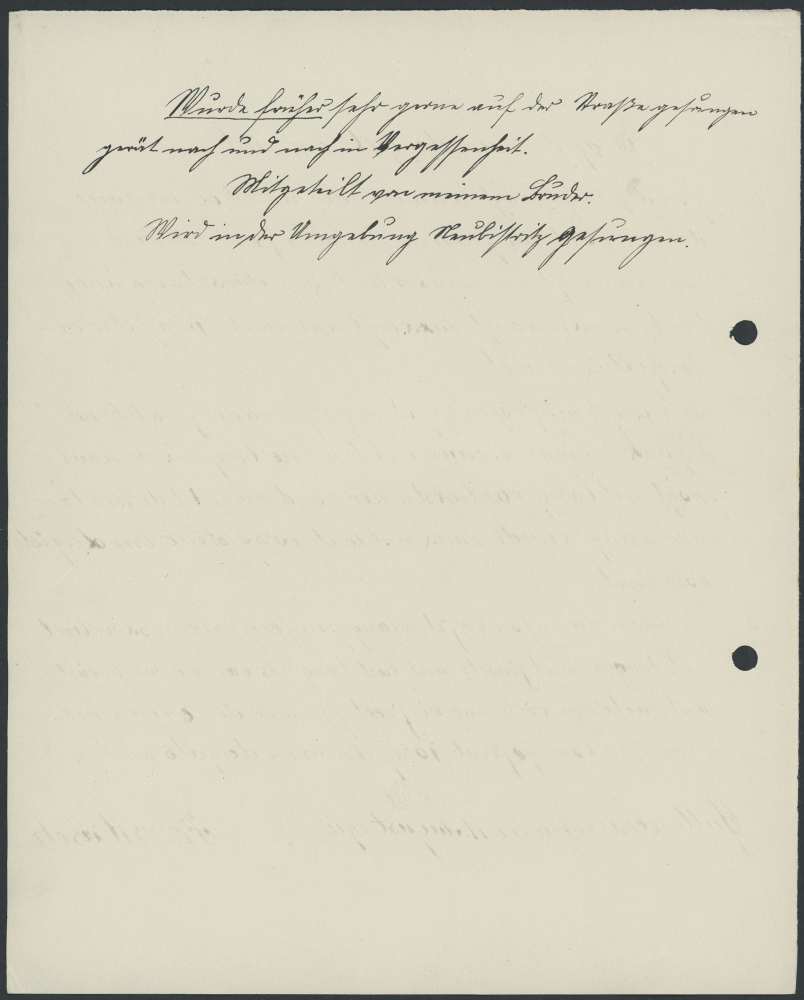 Wurde früher sehr gerne auf der Straße gesungen
gerät nach und nach in Vergessenheit.
Mitgeteilt von meinem Bruder.
Wird in der Umgebung Neubistritz gesungen.